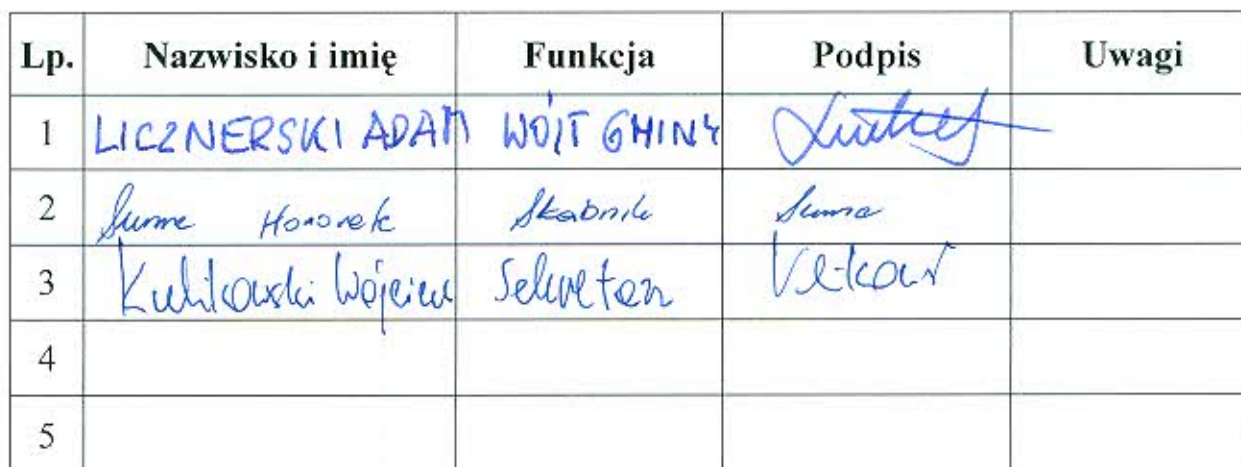 Lp. Nazwisko i imię Funkcja Podpis Uwagi
1 LICZNERSKI ADAM WÓJT GMINY
2 Honorek Skabnik
3 Kulikowski Wojciech Sekretarz
4
5